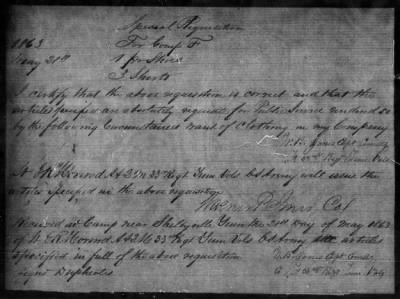 Special Requisition
1863 For Comp F
May 21st 1 pr Shoes
2 Shirts
I certify that the above requisition is correct and that the
articles specified are absolutely requisite for Public Service rendered so
by the following Circumstances want of Clothing in my Company
Capt Comdg
23rd Regt Tenn Vols
A 2 M 23 Regt Tenn Vols C S Army will issue the
articles specified in the above requisition
Col
Received at Camp near Shelbyville Tenn the 21st day of May 1863
of A 2 M 23 Regt Tenn Vols C S Army articles
specified in full of the above requisition
Capt Comdg
Regt Tenn Vols